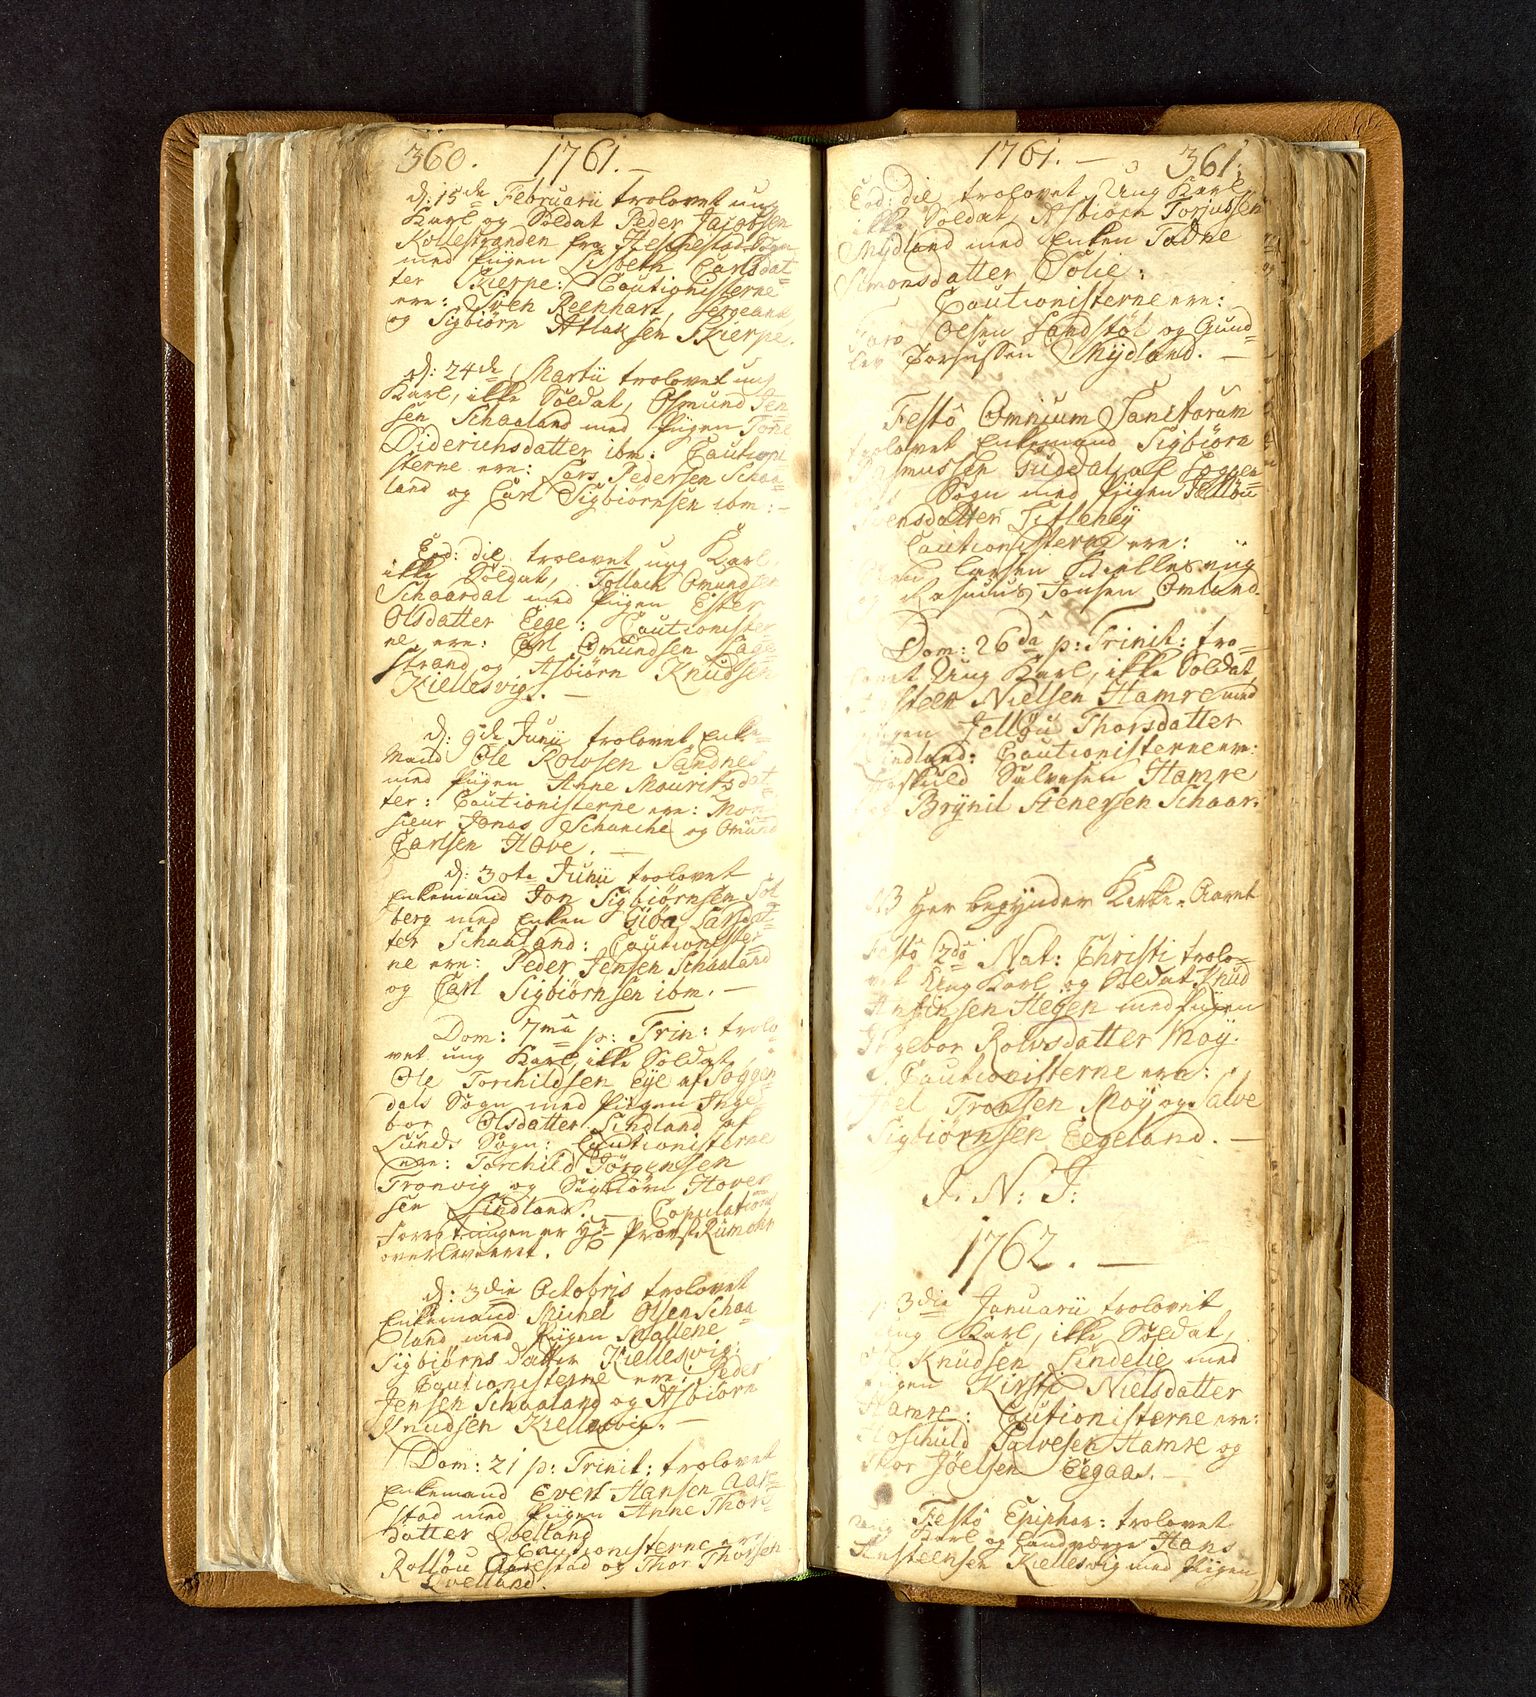 360. 1761.
d: 15de Februarii trolovet ung
Karl og Soldat Peder Jacobsen
Kollestranden fra Heschestad Sogn
med Piigen Lisbeth Carlsdat=
ter Skierpe: Cautionisterne
ere: Sven Reenhart, Sergeant,
og Sigbiørn Atlaksen Skierpe.
d: 24de Martii trolovet ung
Karl, ikke Soldat, Osmund Jen
sen Schaaland med Piigen Tone
Diderichsdatter ibm: Cautioni
sterne ere: Lars Pedersen Schaa=
land og Carl Sigbiørnsen ibm: -
Eod: die trolovet ung Karl,
ikke Soldat, Tollach Omundsen
Schaardal med Piigen Ester
Olsdatter Eege: Cautionister=
ne ere: Carl Omundsen Lage
strand og Asbiørn Knudsen
Kiellesvig. -
d: 9de Junii trolovet Enke=
Mand Ole Rolvsen Sandnes
med Piigen Anne Mouritsdat=
ter: Cautionisterne ere: Mon
sieur Jonas Schanche og Omund
Carlsen Hove. -
d: 30te Junii trolovet
Enkemand Jon Sigbiørnsen Sol
berg med Enken Giva Larsdat=
ter Schaaland: Cautionister=
ne ere: Peder Jensen Schaaland
og Carl Sigbiørnsen ibm. -
Dom: 7ma p: Trin: trolo
vet ung Karl, ikke Soldat,
Ole Torchildsen Eye af Soggen=
dals Sogn med Piigen Inge=
bor Olsdatter Lindland af
Lunds Sogn: Cautionisterne
ere: Torchild Jørgensen
Tronvig og Sigbiørn Hover
sen Lindland. - Copulations
Forretningen er Hr Provst Rumohr
overleveret.
d: 3die Octobris trolovet
Enkemand Michel Olsen Schaa
land med Piigen Mallene
Sigbiørns datter Kiellesvig:
Cautionisterne ere: Peder
Jensen Schaaland og Asbiørn
Knudsen Kiellesvig. -
Dom: 21 p: Trinit: trolovet
Enkemand Evert Hansen Aar=
stad med Piigen Anne Thors
datter Qvelland
Cautionisterne ere:
Rollou Aarestad og Thor Thorsen
Qvelland.
1761. - 361.
Eod: die trolovet Ung Karl
ikke Soldat, Asbiørn Torjussen
Mydland med Enken Tadne
Simonsdatter Solie:
Cautionisterne ere:
Oesen Landstøl og Gund=
lev Torjussen Mydland. -
Festo Omnium Sanctorum
trolovet Enkemand Sigbiørn
Rasmussen Guddalsale Soggen=
Sogn med Piigen Jellou
Svensdatter Titlehey
Cautionisterne ere:
Larsen Kiellesviig
og Rasmus Tonsen Omland.
Dom: 26da p: Trinit: tro=
lovet Ung Karl, ikke Soldat,
Nielsen Hamre med
Piigen Jellou Thorsdatter
Lindland: Cautionisterne ere:
Hoskuld Salvesen Hamre
og Brynil Stenersen Schaar.
NB Her begynder Kirke=Aaret
Festo 2do Nat: Christi trolo=
vet Ung Karl og Soldat Knud
Hansen Hegen med Piigen
Ingebor Rolvsdatter Moy.
Cautionisterne ere:
Tronsen Moy og Salve
Sigbiørnsen Eegeland. -
I. N: J:
1762. -
3die Januarii trolovet
Ung Karl, ikke Soldat,
Ole Knudsen Lindelie med
Piigen Kirsti Nielsdatter
Hamre: Cautionisterne ere:
Hoschuld Salvesen Hamre og
Thor Joelsen Eegaas. -
Festo Epiphan: trolovet
ung Karl og Landværge Hans
Ansteensen Kiellesvig med Piigen